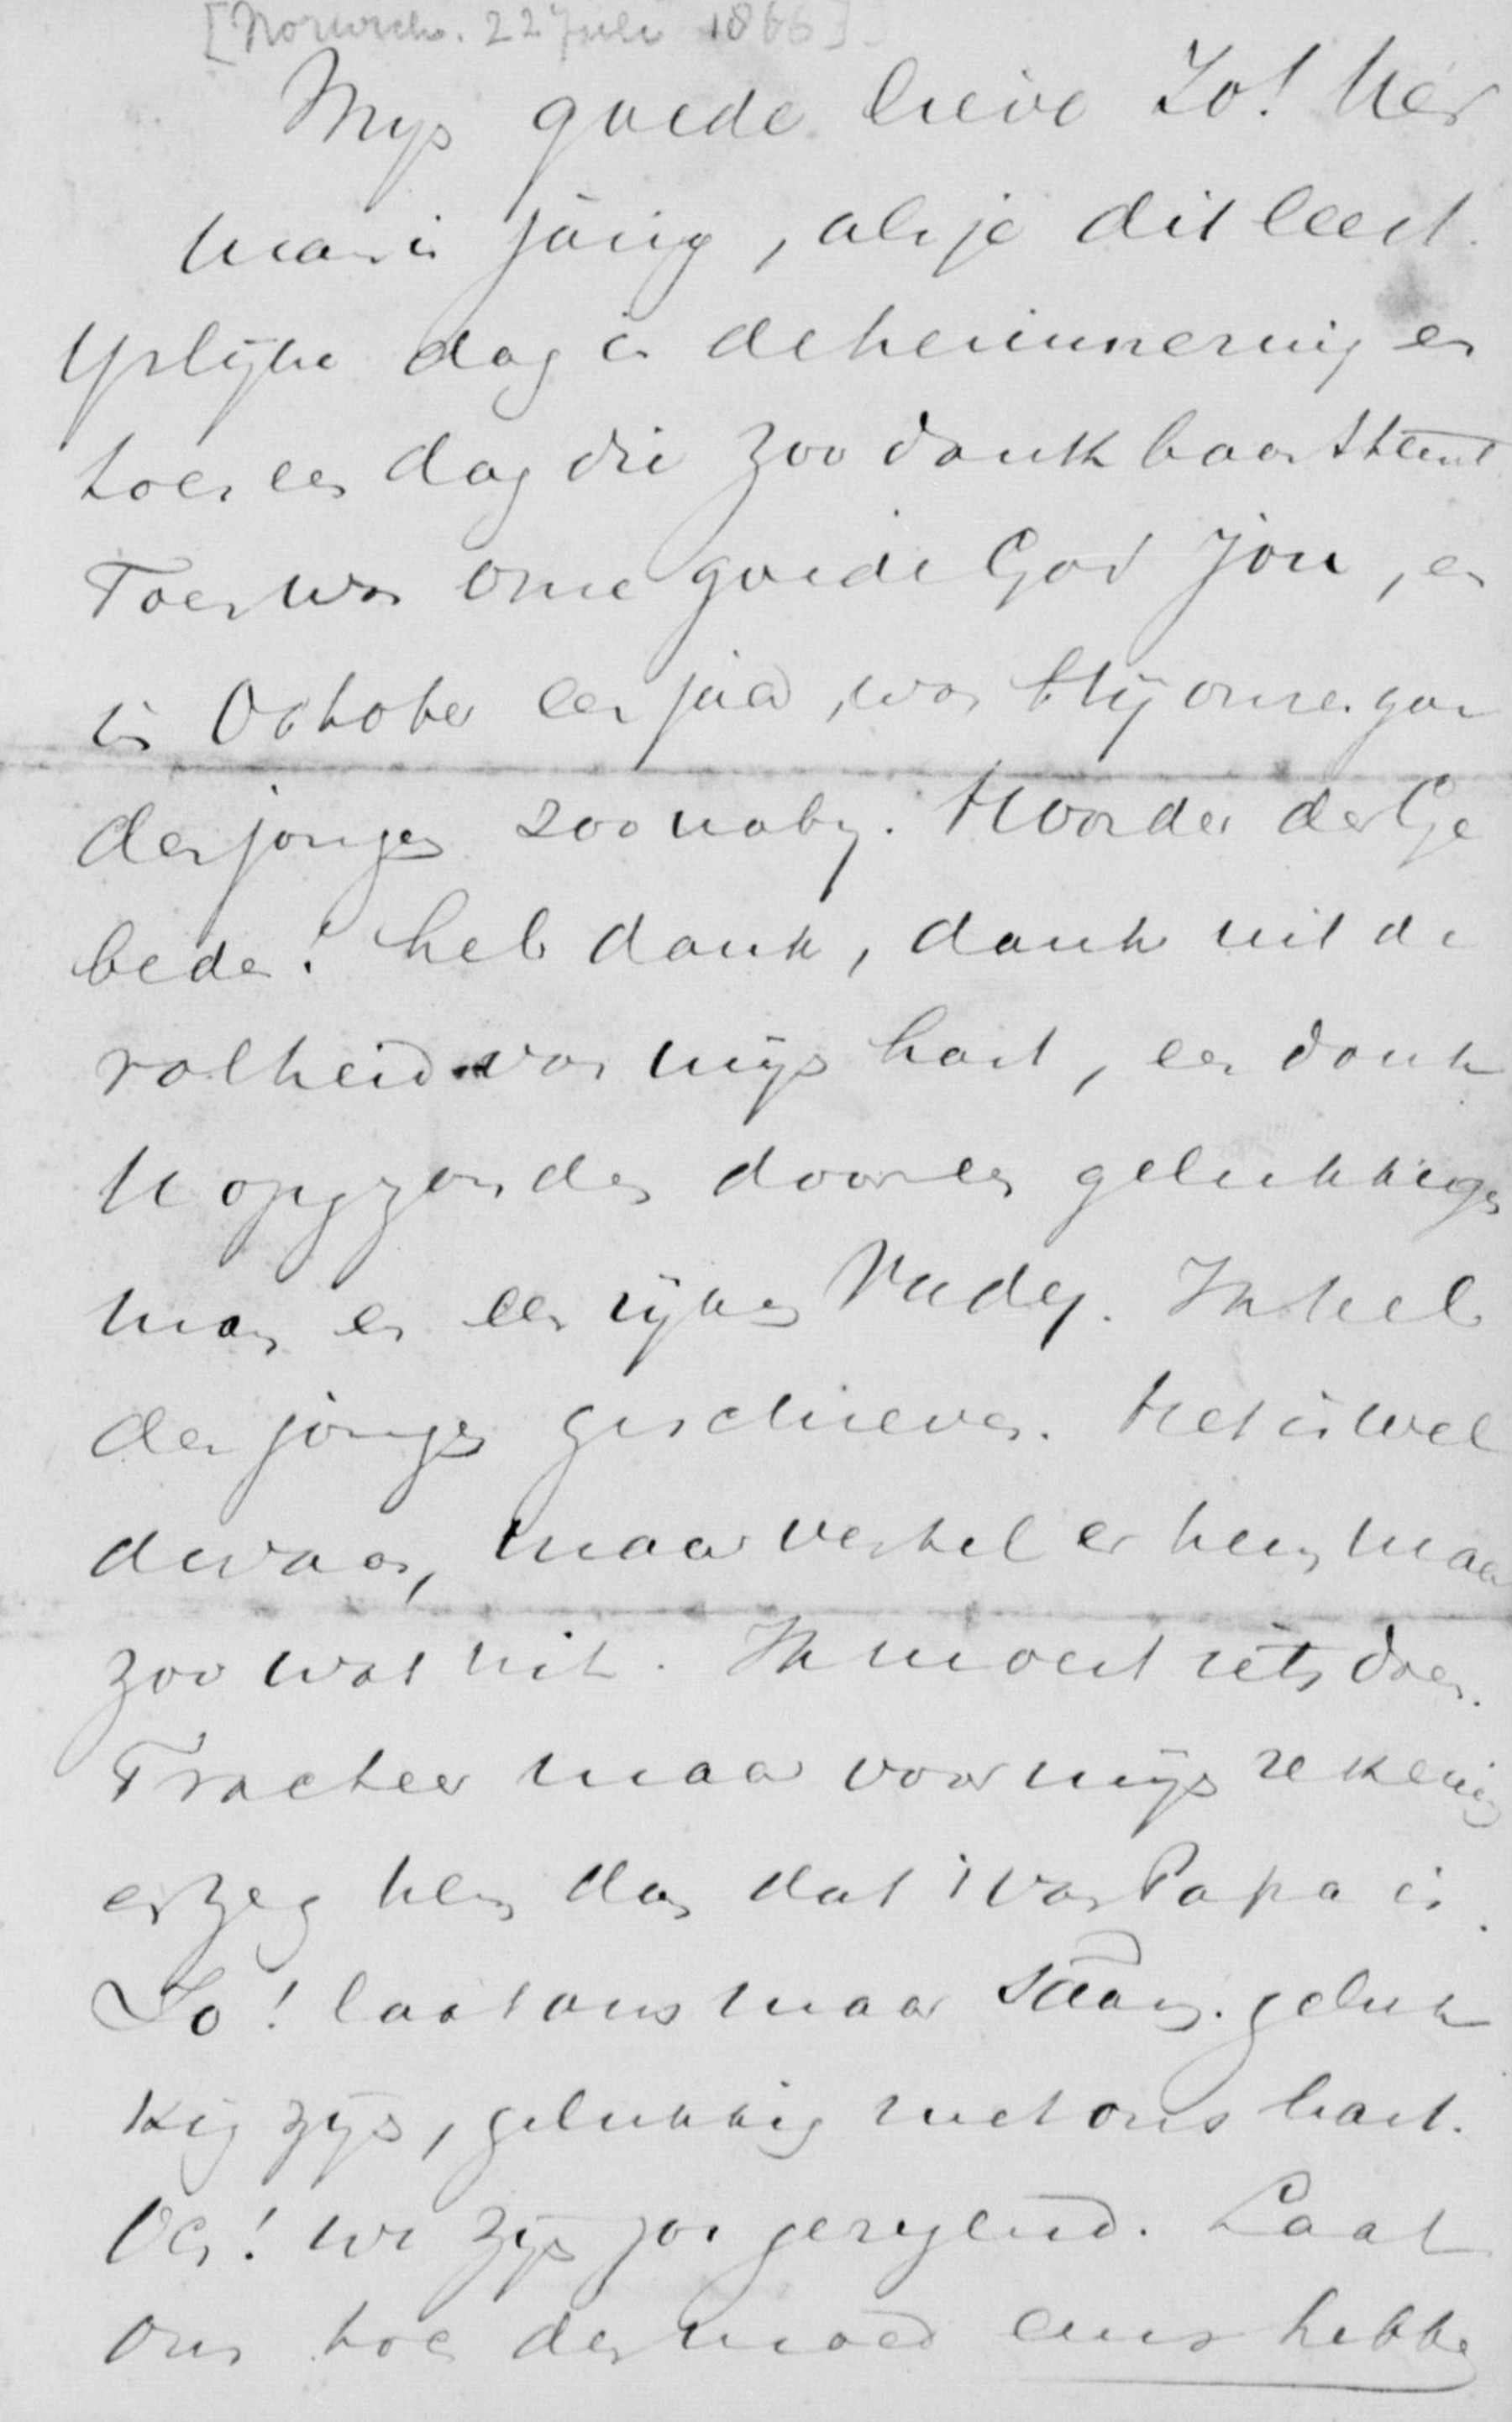 [Norwich. 22 Juli 1866]
Mijn goede lieve Jo! Her
man is jarig, als je dit leest.
IJslijke dag is de herinnering en
toch een dag die zoo dankbaar stemt
Toen was onze goede God jou, en
in October een jaar, was Hij onze
den jongen zoo naby. Hoorder der Ge
bede! heb dank, dank uit de
volheid van mijn hart, een dank
U opgezonden door een gelukkigen
man en een rijken Vader. Ik heb
den jongen geschreven. Het is wel
dwaas, maar vertel er hem maar
zoo wat uit. Ik moest iets doen.
Tracteer maar voor mijn rekening
en zeg hem dan dat 't van Papa is.
Jo! laat ons maar saam geluk
kig zijn, gelukkig met ons hart.
Och! we zijn zoo gezegend. Laat
ons toch den moed eens hebben